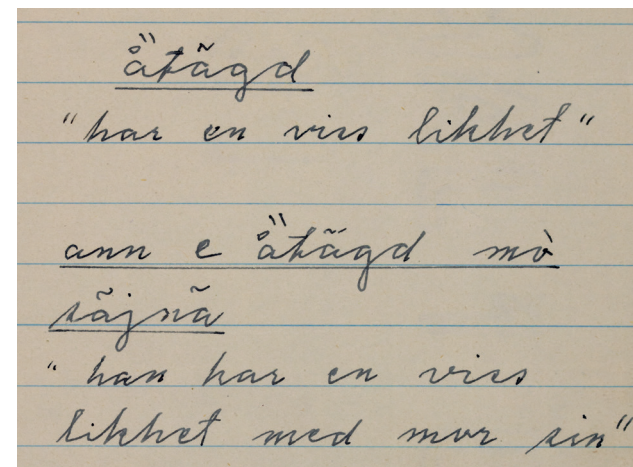 å̋tãgd
"har en viss likhet"
ann e å̋tãgd mò
sãjnã
"han har en viss
likhet med mor sin"